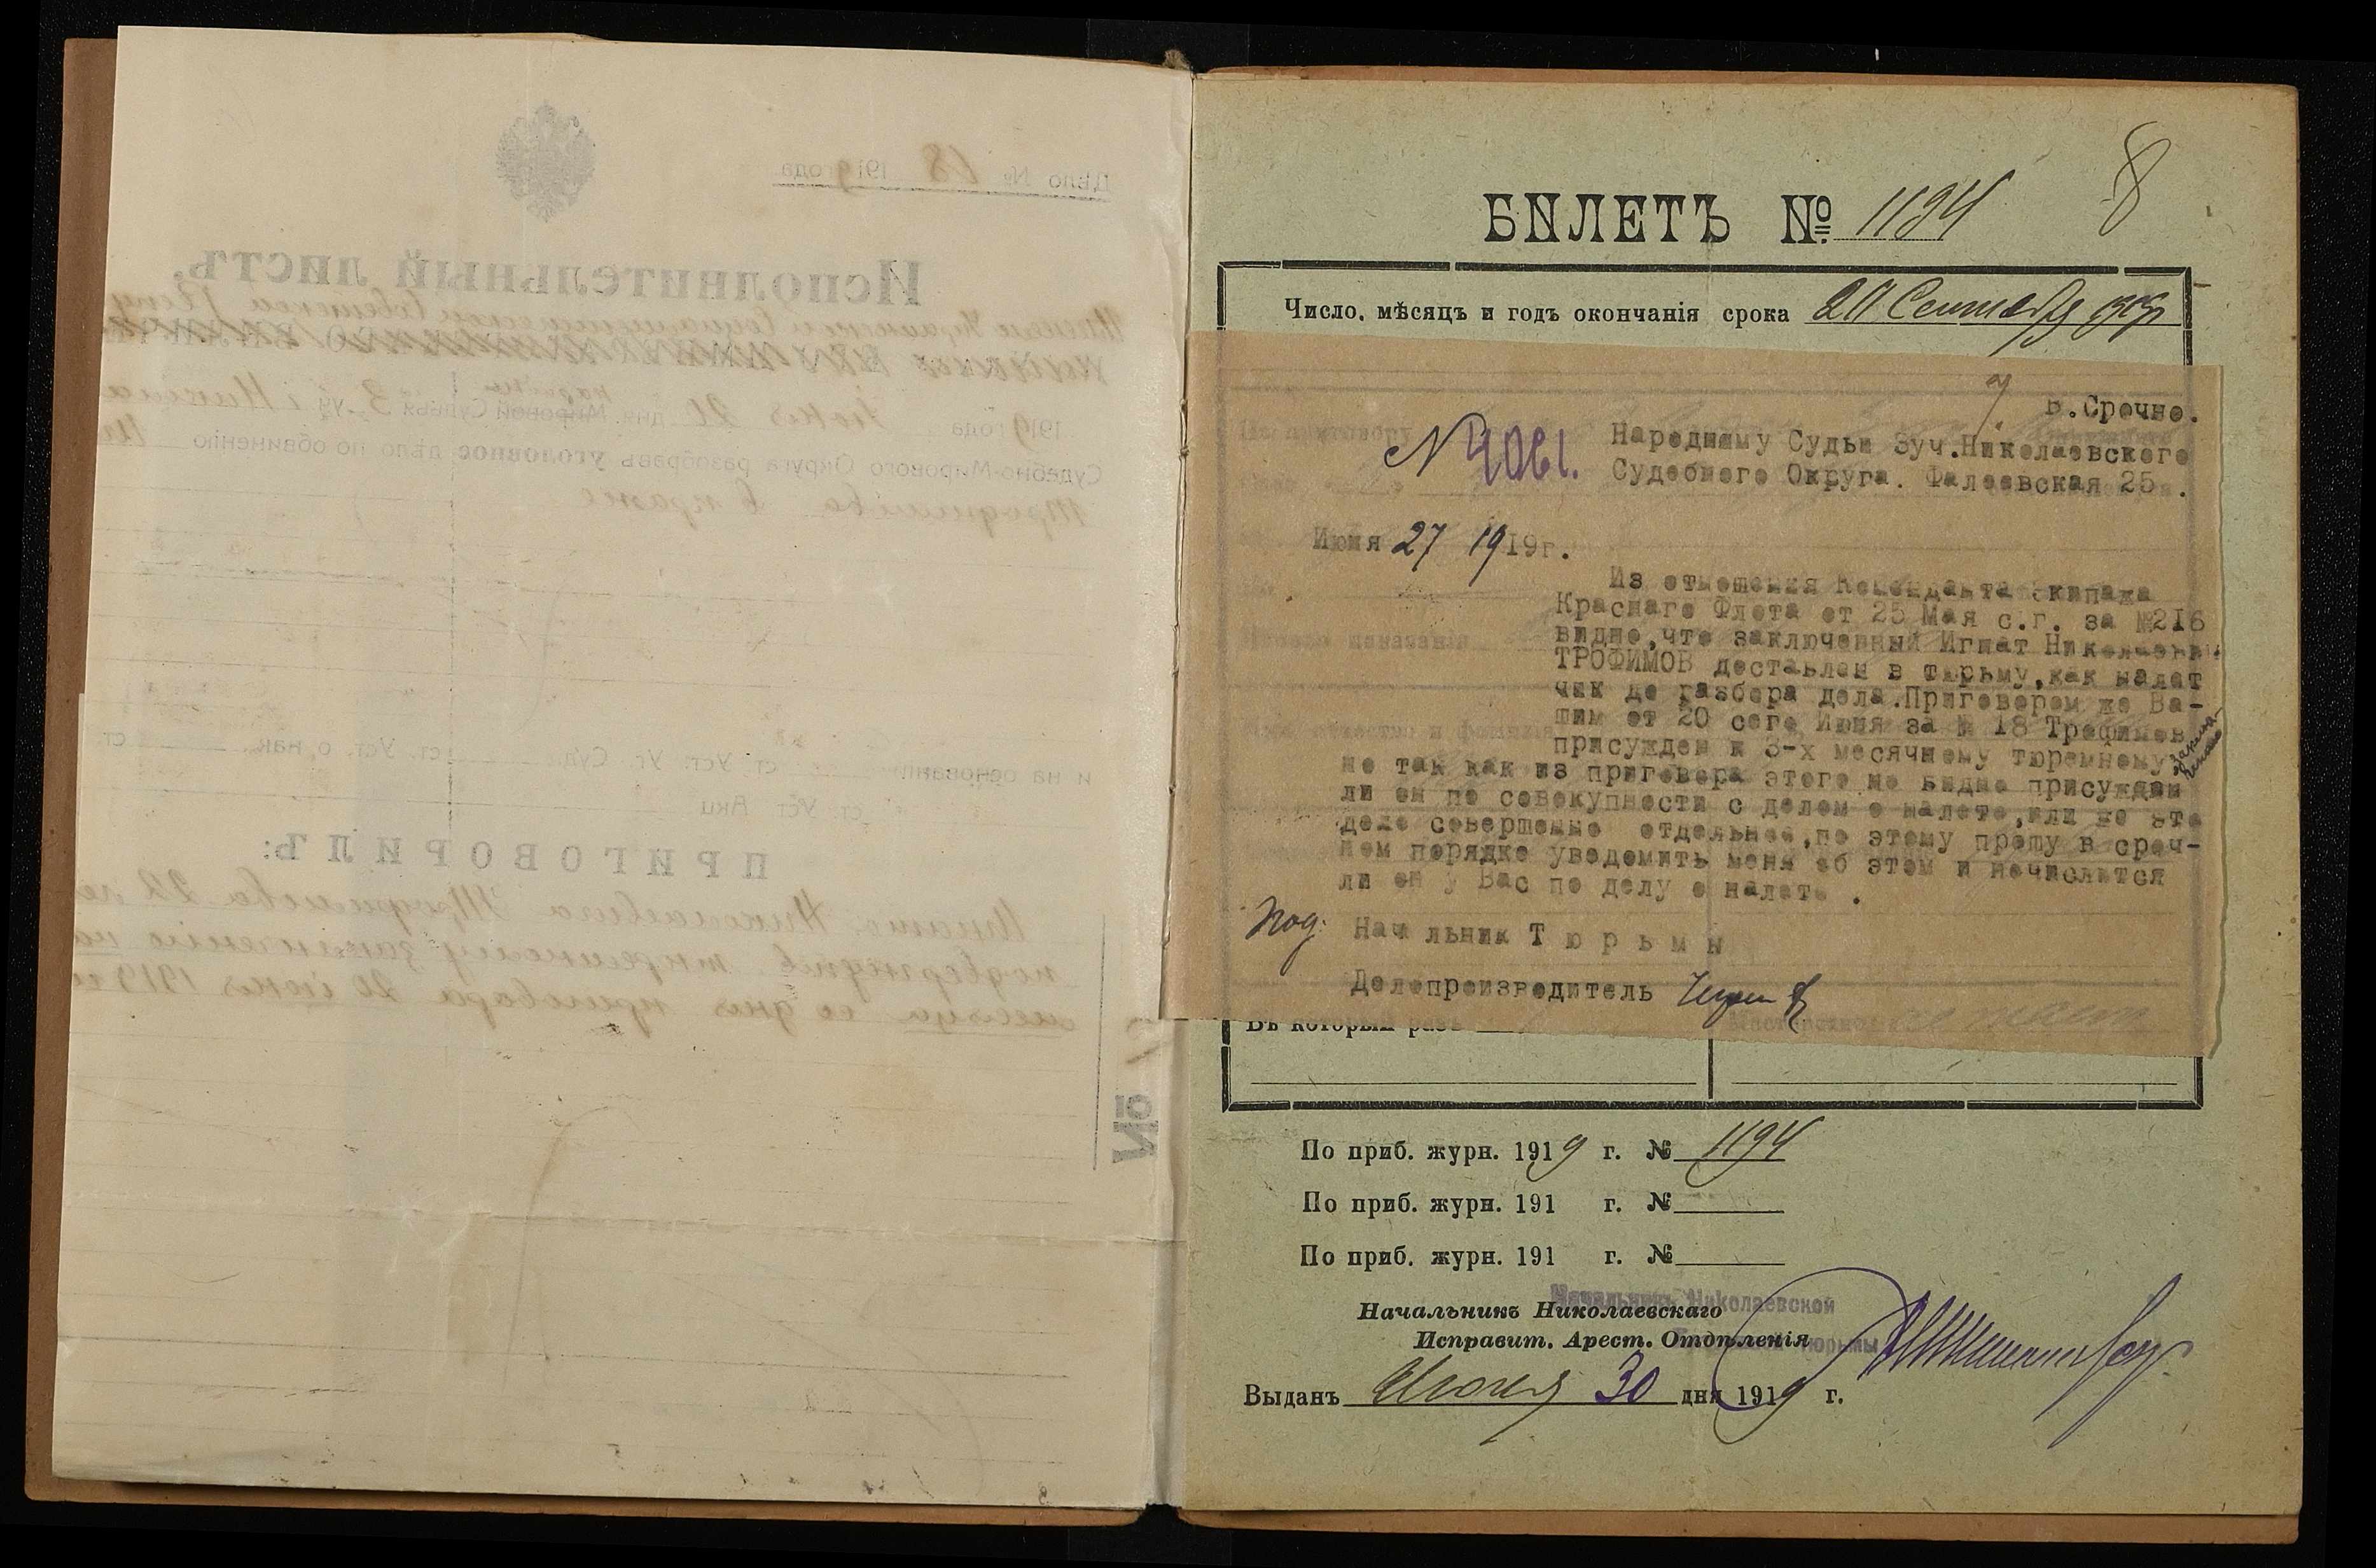 Дѣло № 18 1919 года
Исполнительный листъ
1919 года Іюня 20 дня Мировой Судья 3 уч.
Судебно-Мирового Округа разобравъ уголовное дѣло по обвинению
Трофимова в краже
и на основаніи ст. Уст. Уг. Суд. ст. Уст. о нак. ст.
ст. Уст. Акц.
ПРИГОВОРИЛЪ:
Игната Николаевича Трофимова 22
подвергнуть тюремному заключенію на
месяца со дня приговора 20 июня 1919
№
8
БИЛЕТЪ № 1194
Число, мѣсяцъ и годъ окончанія срока 20 Сентября 1919
В.Срочно.
№ 4061.
Народному Судьи 3уч.Николаевского
Судебного Округа. Фалеевская 25.
Июня 27 1919г.
Из отношения Коменданта Экипажа
Краснаго Флота от 25 Мая с.г. за №216
видно,что заключенный Игнат Николаевич
ТРОФИМОВ доставлен в тюрьму,как налет
чик до разбора дела.Приговором же Ва-
шим от 20 сего Июня за № 18 Трофимов
присужден к 3-х месячному тюремному заклю-
чению
но так как из приговора этого не видно присужден
ли он по совокупности с делом о налете,или же это
дело совершенно отдельное,по этому прошу в сроч-
ном порядке уведомить меня об этом и нечислится
ли он у Вас по делу о налете.
Под: Начальник Тюрьмы
Делопроизводитель
Въ который разъ
По приб. журн. 1919 г. № 1194
По приб. журн. 191 г. №
По приб. журн. 191 г. №
Начальник Николаевской
Начальникъ Николаевскаго
Исправит. Арест. Отдѣленія
тюрьмы
Выданъ Июня 30 дня 1919 г.